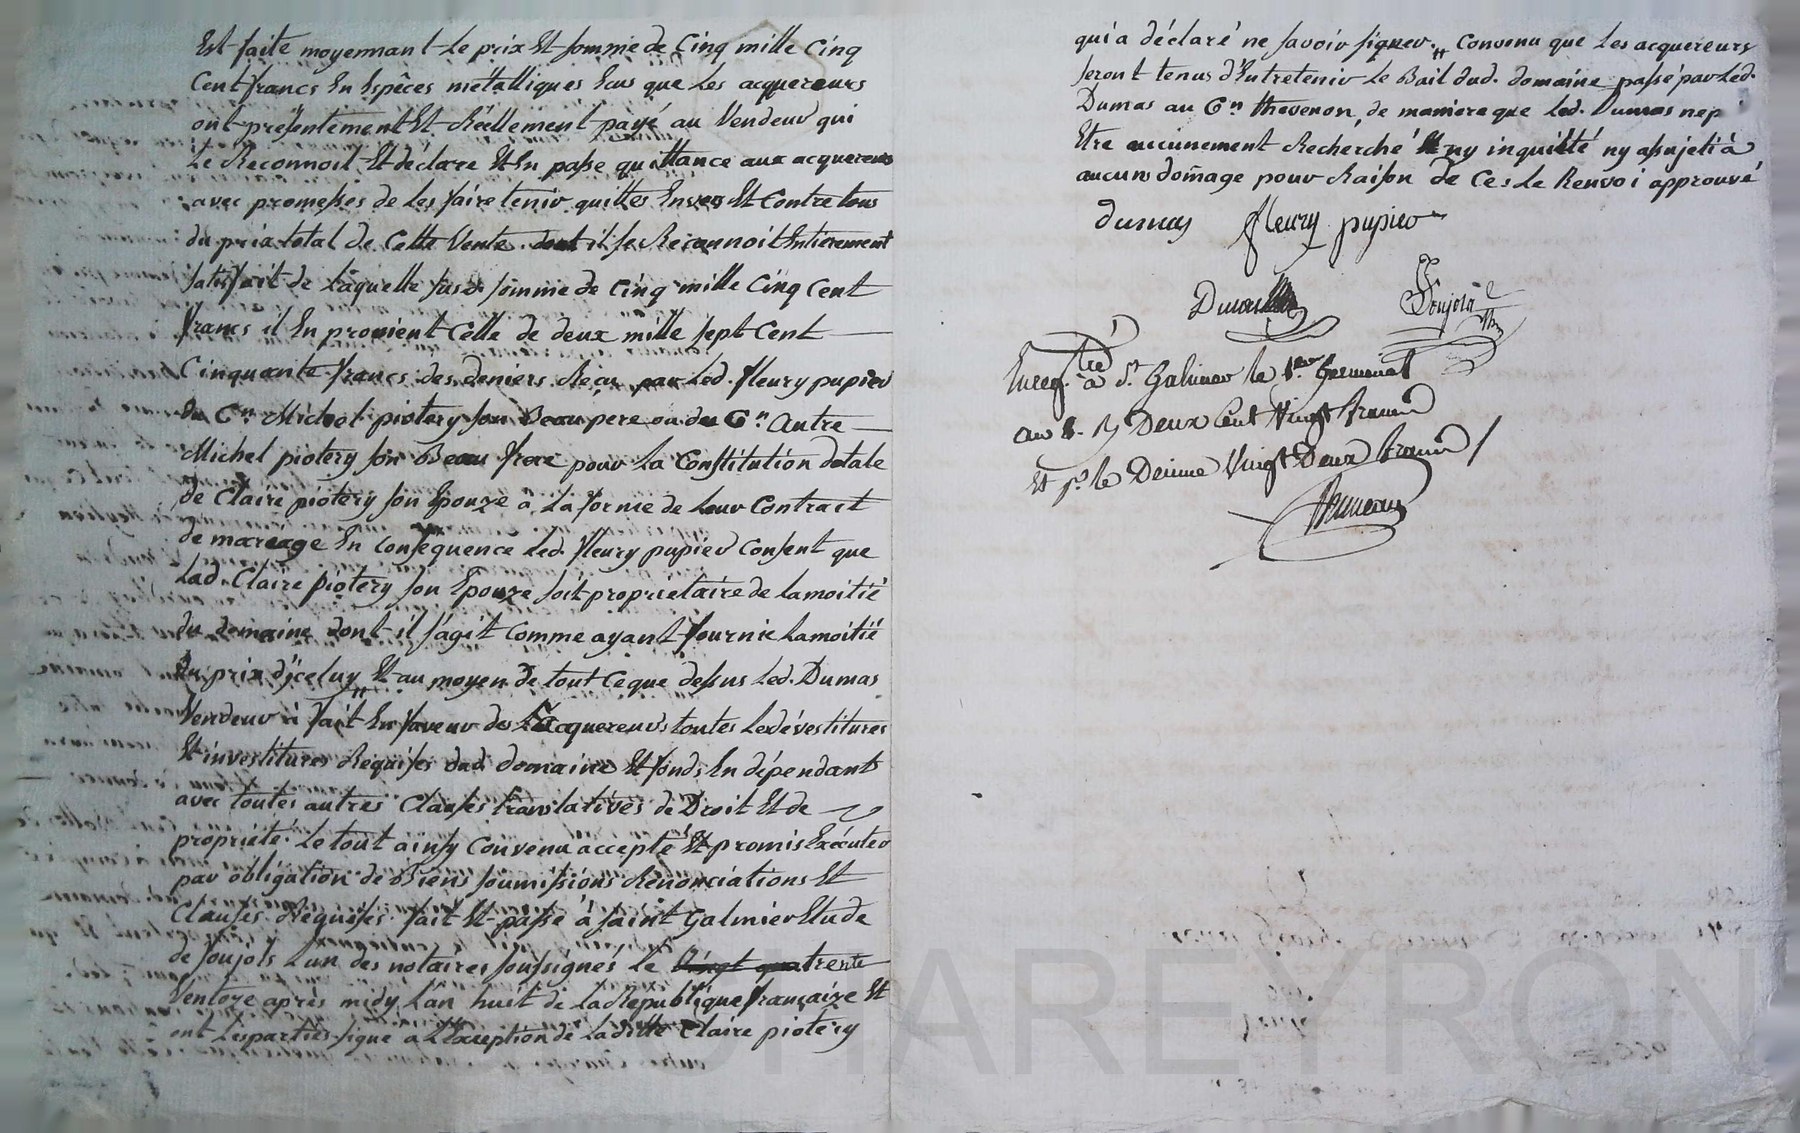 Est faite moyennant le prix Et somme de Cinq mille Cinq
Cent francs En Espêces mettalliques Eus que Les acquereurs
ont présentement Et Réellement payé au Vendeur qui
Le Reconnoit Et déclare Et En passe quittance aux acquereurs
avec promesses de les faire tenir quittes Envers Et Contre tous
du prix total de Cette Vente dont il se Reconnoit Entierement
satisfait de Laquelle susd. somme de Cinq mille Cinq Cent
francs il En provient Celle de deux mille sept Cent
Cinquante francs des deniers Reçus par Led. fleury pupier
du Cn. Michel piotery son Beau pere ou du Cn. Autre
Michel piotery son Beau frere pour La Constitution dotale
de Claire piotery son Epouze â La forme de Leur Contract
de mareage En Consequence Led. fleury pupier Consent que
Lad. Claire piotery son Epouze soit propriétaire de La moitié
du domaine dont il s'agit Comme ayant fournie La moitié
du prix d'yceluy " Et au moyen de tout Ceque dessus Led. Dumas
Vendeur à fait En faveur des acquereurs toutes Les dévestitures
Et investitures Requises dud. domaine Et fonds En dépendants
avec toutes autres Clauses translatives de Droit Et de
propriété. Le tout ainsy Convenu accepté Et promis Exécuter
par obligation de Biens soumissions Rénonciations Et
Clauses Requises fait Et passé à saint Galmier Etude
de soujols L'un des notaires soussignés le Vingt qua trente
Ventoze après midy L'an huit de La Republique française Et
ont Les parties signé a L'Exception de La ditte Claire piotery
qui a déclaré ne savoir signer. " Convenu que Les acquereurs
seront tenus d'Entretenir Le Bail dud. domaine passé par Led.
Dumas au Cn. thevenon, de maniere que Led. Dumas ne p
Etre aucunement Recherché Et ny inquiété ny assujeti à
aucuns dom̃age pour Raison de Ce. Le Renvoi approuvé
dumas fleury pupier
Soujols
Enreg.tré à St. Galmier le 1er Germinal
an 8. Deux Cent Vingt francs
Et pr. le Deime Vingt Deux francs /
CHAREYRON